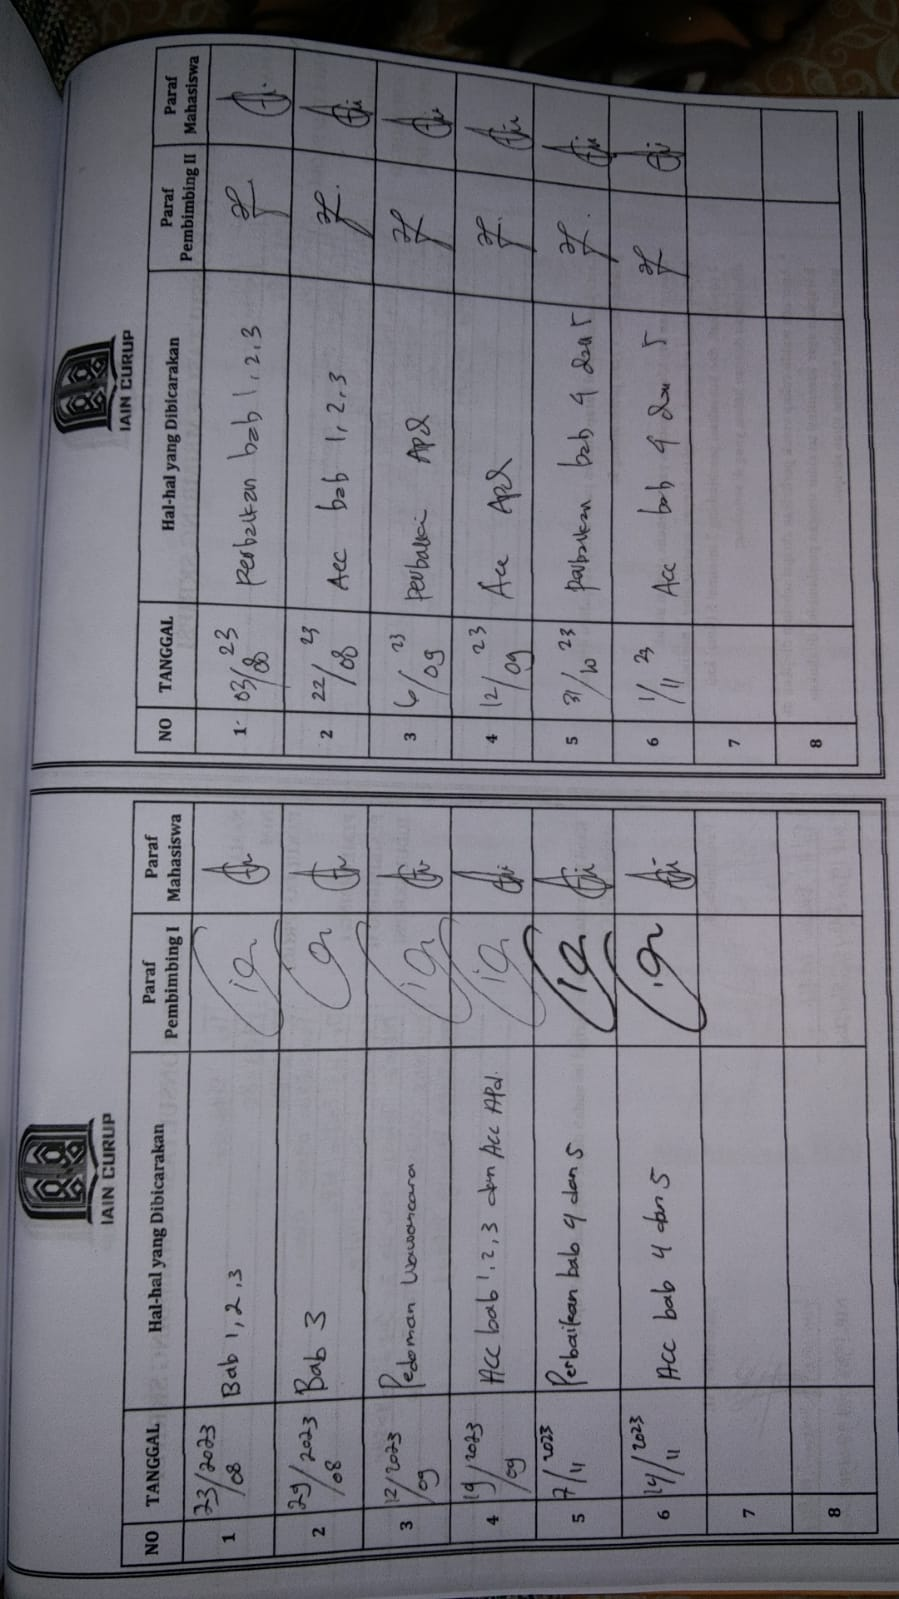 IAIN CURUP
NO TANGGAL Hal-hal yang Dibicarakan Paraf Pembimbing I Paraf Mahasiswa
1 23/08/2023 Bab 1, 2, 3
2 29/08/2023 Bab 3
3 12/09/2023 Pedoman Wawancara
4 19/09/2023 Acc bab 1, 2, 3 dan Acc APd.
5 7/11/2023 Perbaikan bab 4 dan 5
6 14/11/2023 Acc bab 4 dan 5
7
8
IAIN CURUP
NO TANGGAL Hal-hal yang Dibicarakan Paraf Pembimbing II Paraf Mahasiswa
1. 03/08 23 Perbaikan bab 1, 2, 3
2 22/08 23 Acc bab 1, 2, 3
3 6/09 23 APd
4 12/09 23 Acc APd
5 31/10 23 bab 4 dan 5
6 1/11 23 Acc bab 4 dan 5
7
8